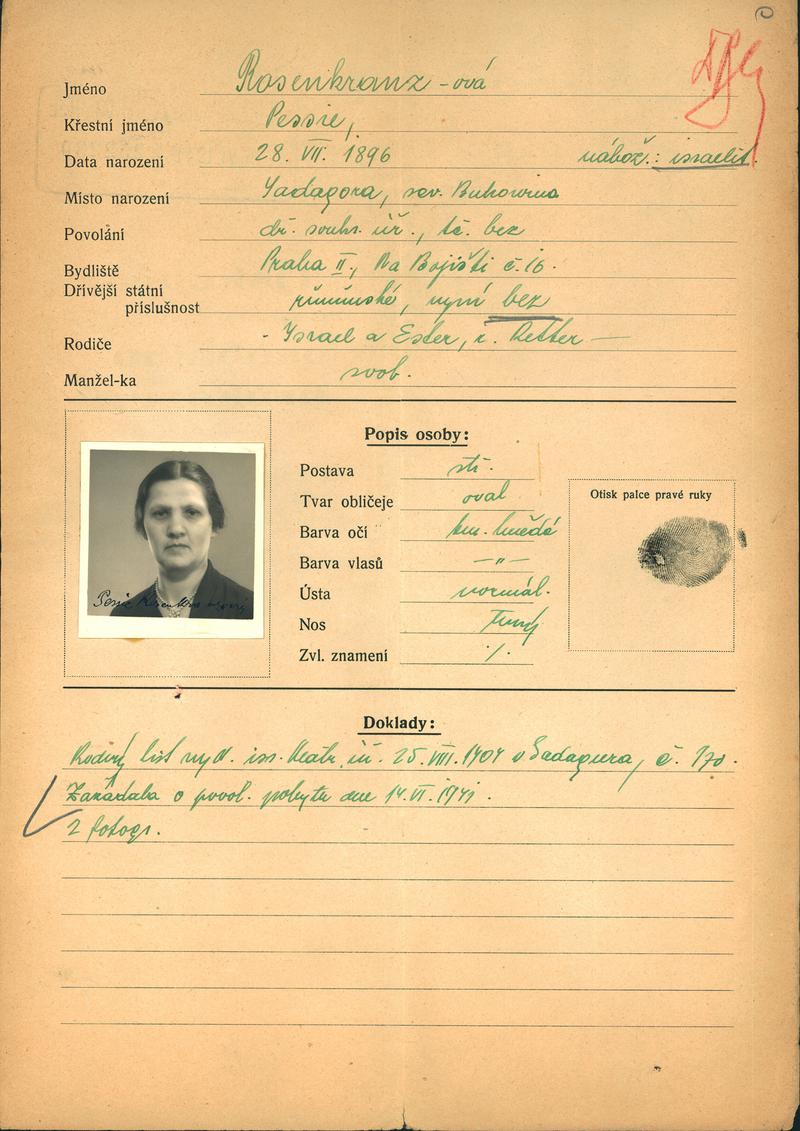 Jméno Rosenkranz-ová
Křestní jméno Pessie,
Data narození 28. VII. 1896 nábož.: israelit.
Místo narození Sadagora, sev. Bukowina
Povolání dř. soukr. úř., tč. bez
Bydliště Praha II., Na Bojišti č. 16.
Dřívější státní
příslušnost rumunské, nyní bez
Rodiče - Israel a Ester, r. Retter —
Manžel-ka svob.
Popis osoby:
Postava stř.
Tvar obličeje oval
Barva očí tm. hnědé
Barva vlasů —"—
Ústa normál.
Nos
Zvl. znamení ./.
Otisk palce pravé ruky
Pessie Rosenkranzová
Doklady:
Rodný list vyd. isr. matr. úř. 25. VIII. 1904 v Sadagura, č. 170.
o povol. pobytu dne 14. VI. 1941.
2 fotogr.